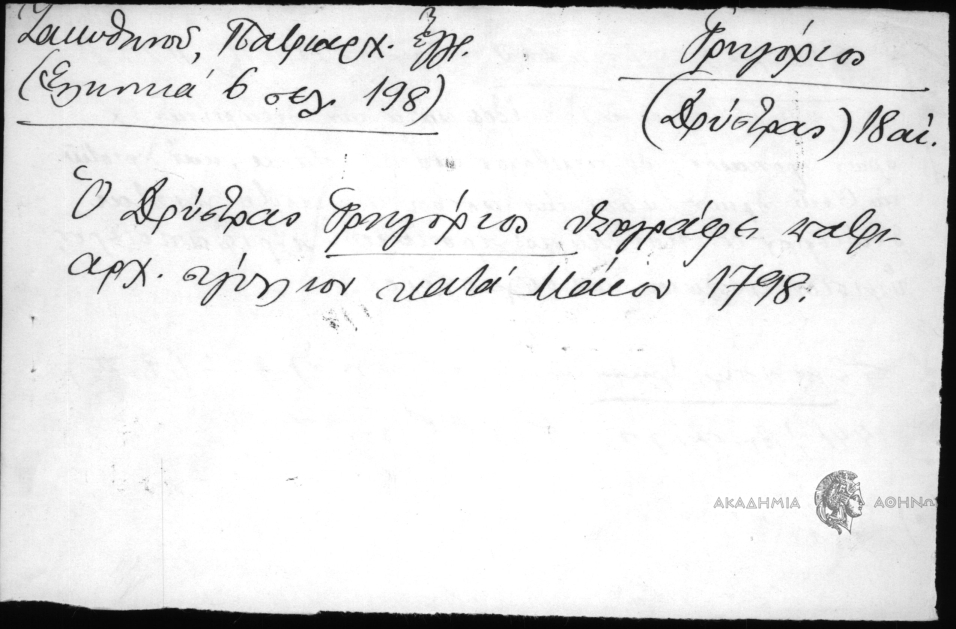 Ζακυθηνού, Πατριαρχ. Έγγρ.
(Ελληνικά 6 σελ. 198)
Γρηγόριος
(Δρύστρας) 18 αἰ.
Ὁ Δρύστρας Γρηγόριος ὑπογράφει πατρι-
αρχ. σιγίλλιον κατά Μάιον 1798.
ΑΚΑΔΗΜΙΑ ΑΘΗΝΩΝ